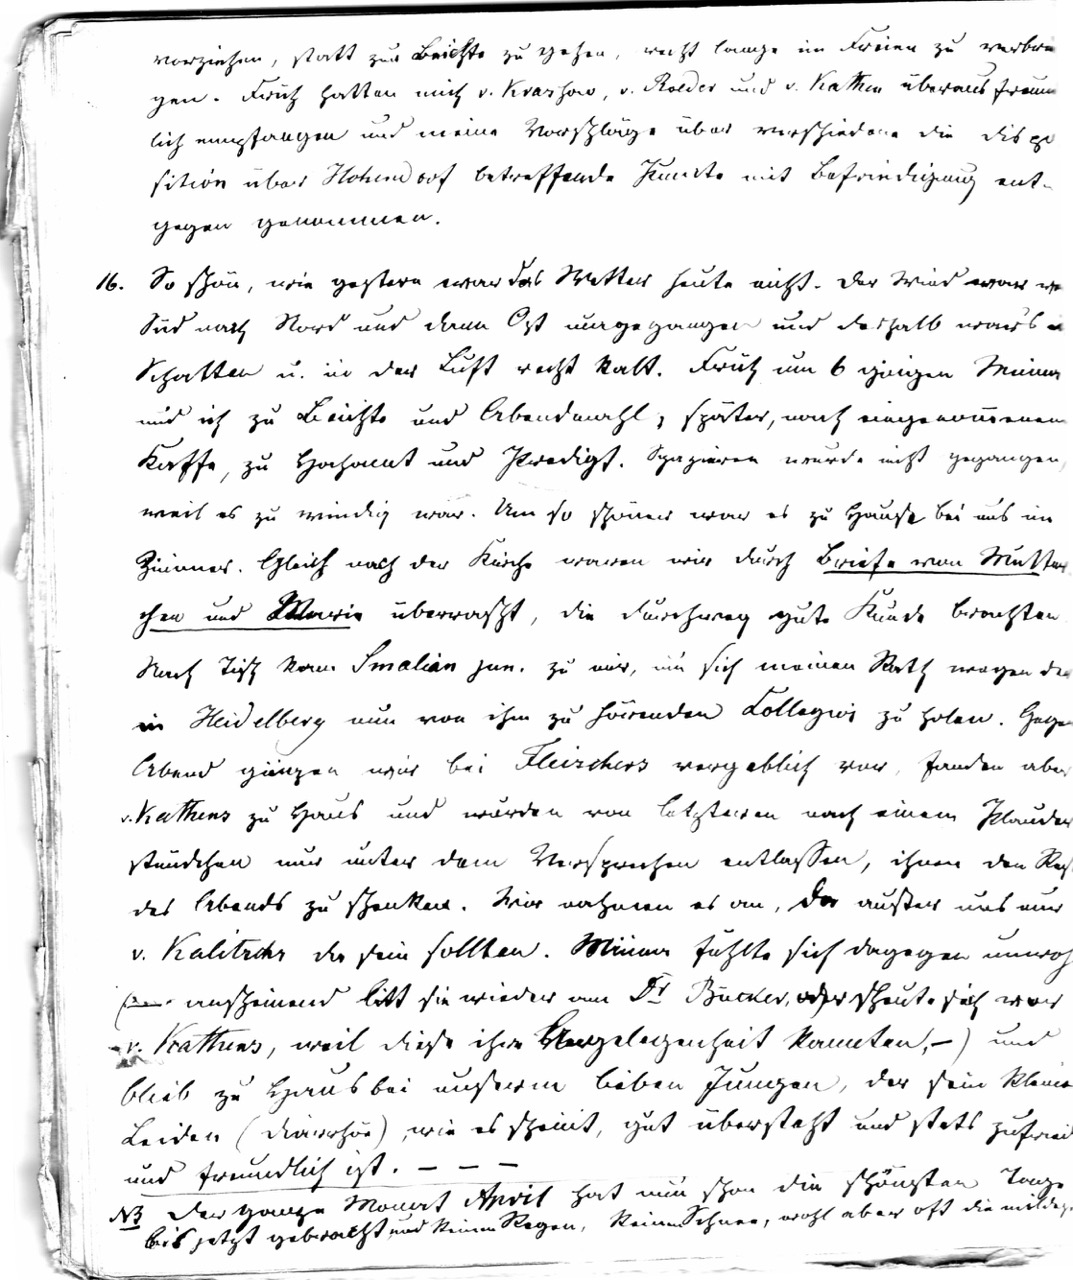 vorziehen, statt zur Beichte zu gehen, recht lange im Freien zu verbrin
gen. Früh hatten mich v. Krassow, v. Roeder und v. Kathen überaus freund
lich empfangen und meine Vorschläge über verschiedene die Dispo
sition über Hohendorf betreffende Punkte mit Befriedigung ent-
gegen genommen.
16. So schön, wie gestern war das Wetter heute nicht. Der Wind war
Süd nach Nord und dann Ost umgegangen und deshalb war's
Schatten u. in der Luft recht kalt. Früh um 6 gingen Minna
und ich zu Beichte und Abendmahl, später, nach eingenom̄enem
Kaffe, zu Hochamt und Predigt. Spazieren wurde nicht gegangen,
weil es zu windig war. Um so schöner war es zu Hause bei uns im
Zimmer. Gleich nach der Kirche waren wir durch Briefe von Mutter
chen und Marie überrascht, die durchweg gute Kunde brachten.
Nach Tisch kam Smalian jun. zu mir, um sich meinen Rath wegen der
in Heidelberg nun von ihm zu hörenden Collegia zu holen. Gegen
Abend gingen wir bei Fleischers vergeblich vor, fanden aber
v. Kathens zu Haus und wurden von letzteren nach einem Plauder
stündchen nur unter dem Versprechen entlassen, ihnen den Rest
des Abends zu schenken. Wir nahmen es an, da außer uns nur
v. Kalitschs da sein sollten. Minna fühlte sich dagegen unwoh
anscheinend litt sie wieder am Dr Bücker, oder scheute sich vor
v. Kathens, weil diese ihre Angelegenheit kannten, –) und
blieb zu Haus bei unserem lieben Jungen, der sein kleines
Leiden (Diarrhöe), wie es scheint, gut übersteht und stets zufried
und freundlich ist. – – –
NB Der ganze Monat April hat nun schon die schönsten Tage
bis jetzt gebracht und keinen Regen, keinen Schnee, wohl aber oft die mildeste